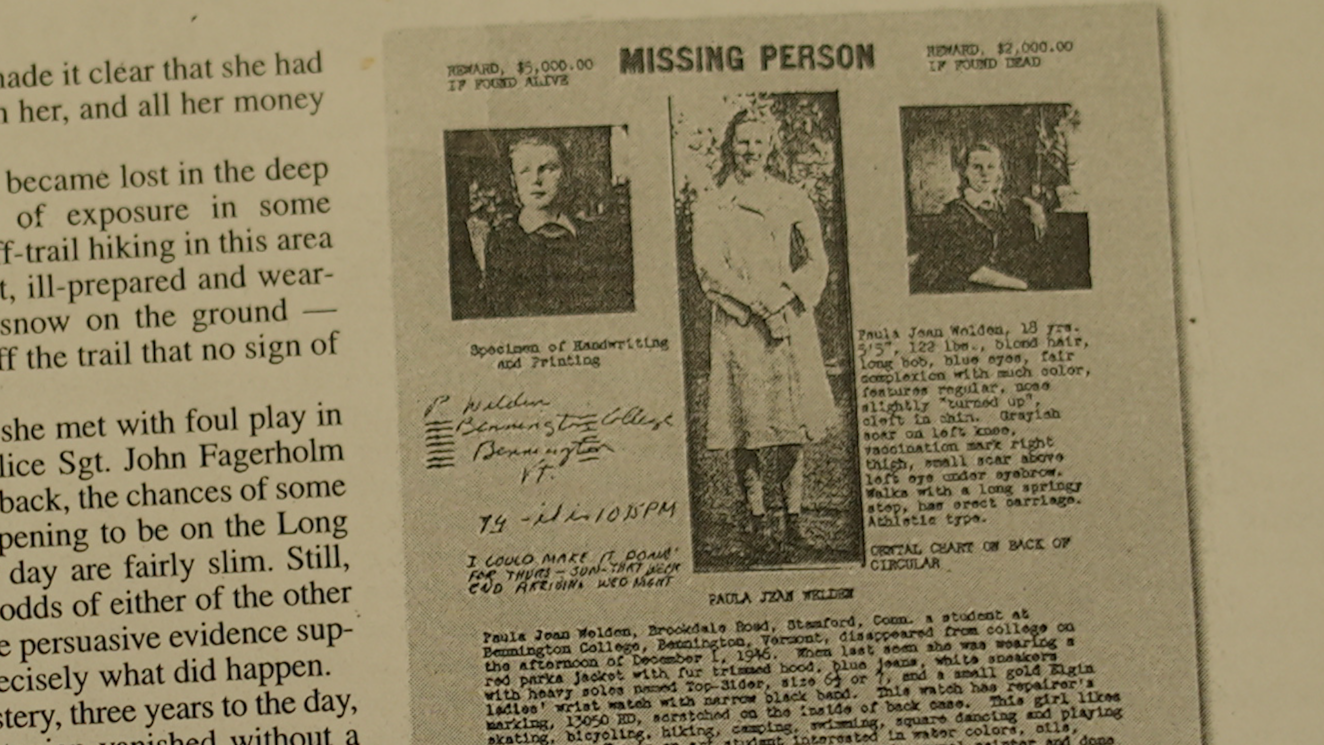 made it clear that she had
her, and all her money
became lost in the deep
of exposure in some
ff-trail hiking in this area
t, ill-prepared and wear-
snow on the ground —
ff the trail that no sign of
she met with foul play in
lice Sgt. John Fagerholm
back, the chances of some
pening to be on the Long
day are fairly slim. Still,
odds of either of the other
e persuasive evidence sup-
ecisely what did happen.
stery, three years to the day,
vanished without a
REWARD, $5,000.00
IF FOUND ALIVE
MISSING PERSON
REWARD, $2,000.00
IF FOUND DEAD
Specimen of Handwriting
and Printing
P Welden
Bennington College
Bennington
VT.
it is 10 35 PM
I COULD MAKE IT DOWN
FOR THURS - SUN - THAT WEEK
END ARRIVING WED NIGHT
Paula Jean Welden, 18 yrs.
5'5", 122 lbs., blond hair,
long bob, blue eyes, fair
complexion with much color,
features regular, nose
slightly "turned up",
cleft in chin. Grayish
scar on left knee,
vaccination mark right
thigh, small scar above
left eye under eyebrow.
Walks with a long springy
step, has erect carriage.
Athletic type.
DENTAL CHART ON BACK OF
CIRCULAR
PAULA JEAN WELDEN
Paula Jean Welden, Brookdale Road, Stamford, Conn. a student at
Bennington College, Bennington, Vermont, disappeared from college on
the afternoon of December 1, 1946. When last seen she was wearing a
red parka jacket with fur trimmed hood, blue jeans, white sneakers
with heavy soles named Top-Sider, size 6½ or 7, and a small gold Elgin
ladies' wrist watch with narrow black band. This watch has repairer's
marking, 13050 HD, scratched on the inside of back case. This girl likes
skating, bicycling, hiking, camping, swimming, square dancing and playing
art student interested in water colors, oils,
and done